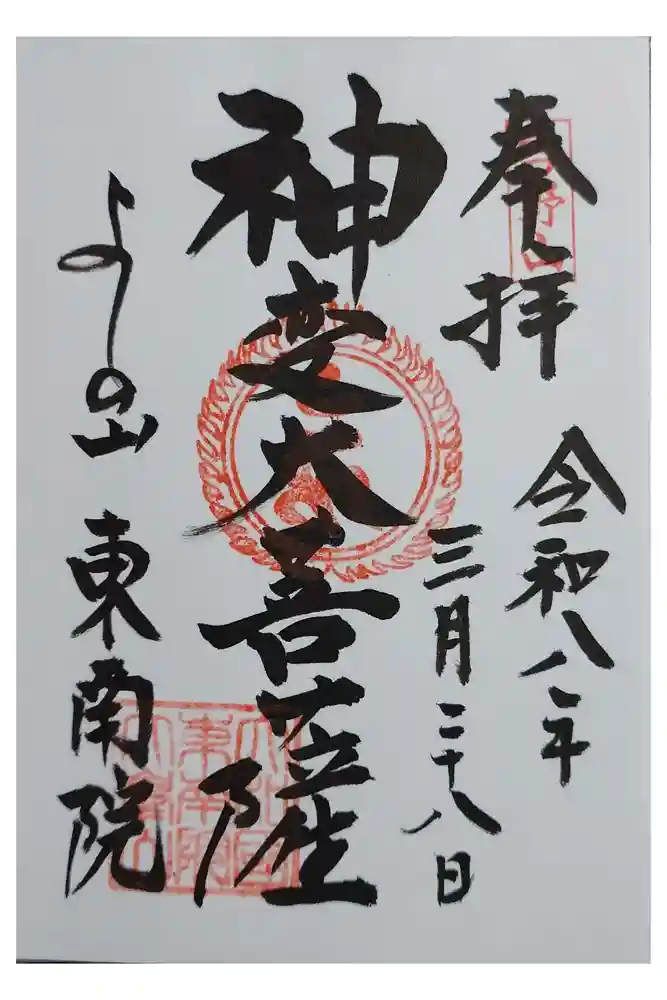 奉拝
令和八年
三月二十八日
神変大菩薩
よしの山
東南院